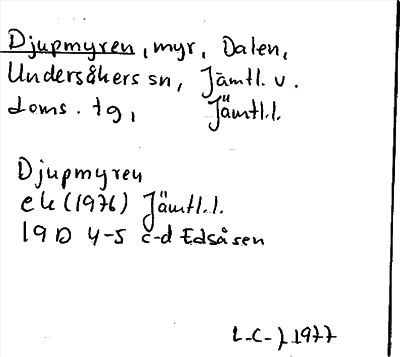 Djupmyren, myr, Dalen,
Undersåkers sn, Jämtl. v.
doms. tg, Jämtl.l.
Djupmyren
ek (1976) Jämtl.l.
19D 4-5 c-d Edsåsen
L-C-J 1977